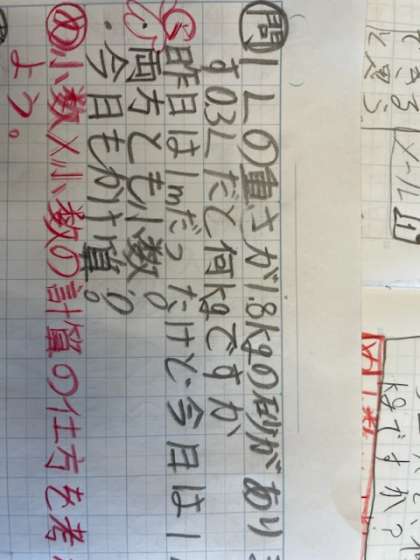 問 1Lの重さが1.8kgの砂があり
す0.3Lだと何kgですか
昨日は1mだっただけど今日は1
両方とも小数
・今日もかけ算。
め 小数×小数の計算の仕方を考
よう。
と思う
kgですか?